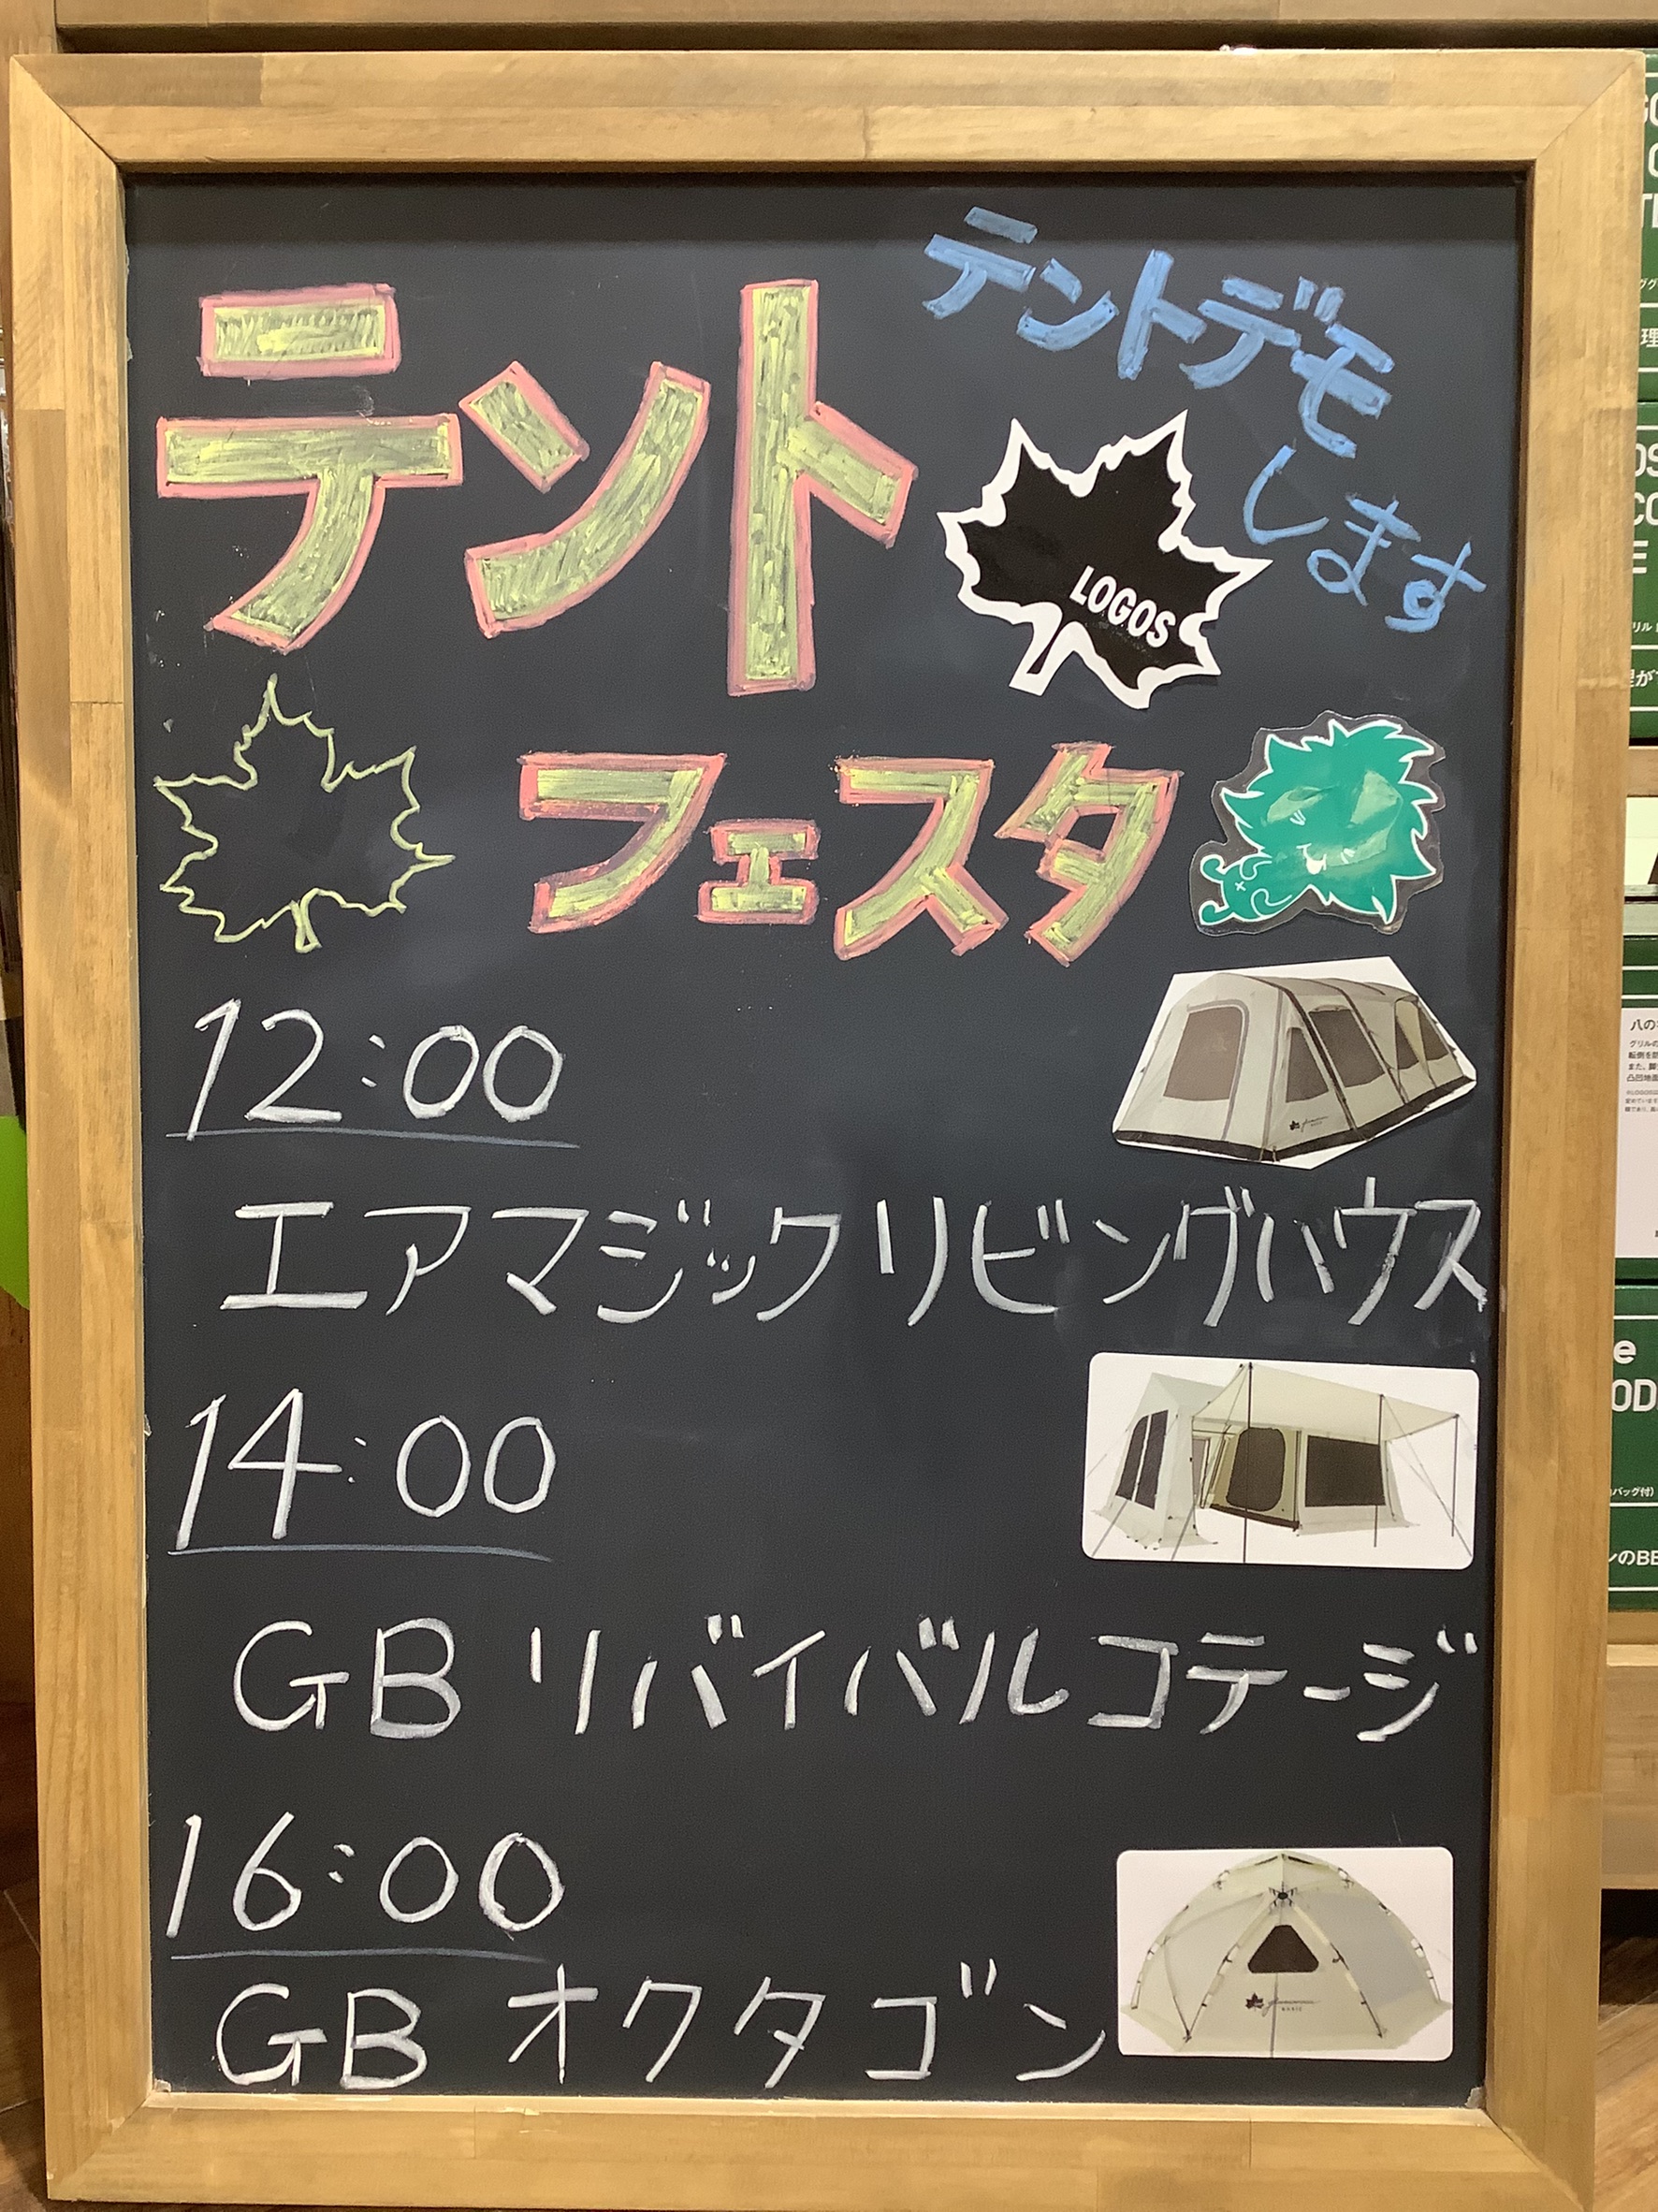 テントデモ
します
テント
LOGOS
フェスタ
12:00
エアマジックリビングハウス
14:00
GB リバイバルコテージ
16:00
GB オクタゴン